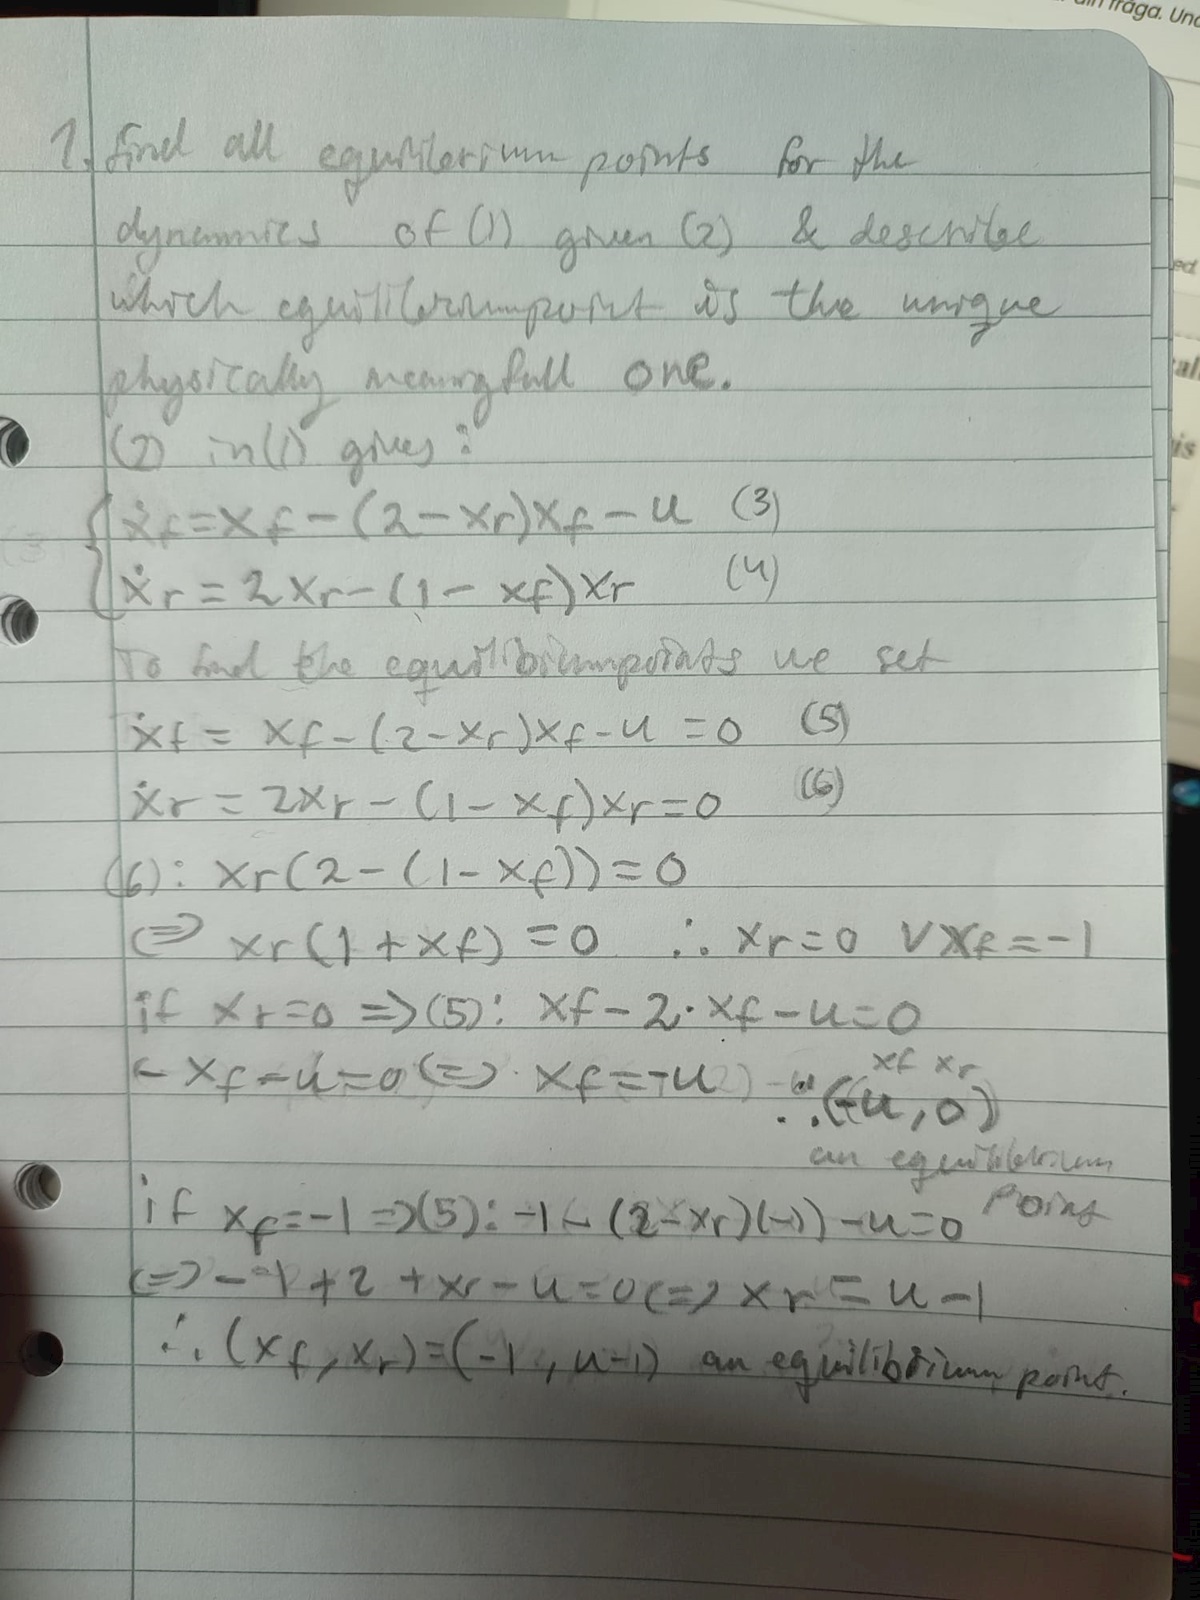 din fråga. Und
1. find all equilibrium points for the
dynamics of (1) given (2) & describe
which equilibriumpoint is the unique
physically meaningfull one.
(2) in (1) gives:
ẋf = xf - (2 - xr)xf - u (3)
ẋr = 2xr - (1 - xf)xr (4)
To find the equilibriumpoints we set
ẋf = xf - (2 - xr)xf - u = 0 (5)
ẋr = 2xr - (1 - xf)xr = 0 (6)
(6): xr(2 - (1 - xf)) = 0
⇔ xr(1 + xf) = 0 ∴ xr = 0 ∨ xf = -1
if xr = 0 ⇒ (5): xf - 2·xf - u = 0
- xf - u = 0 ⇔ xf = -u
xf xr
∴ (-u, 0)
an equilibrium
point
if xf = -1 ⇒ (5): -1 - (2 - xr)(-1) - u = 0
⇔ -1 + 2 + xr - u = 0 ⇔ xr = u - 1
∴ (xf, xr) = (-1, u-1) an equilibrium point.